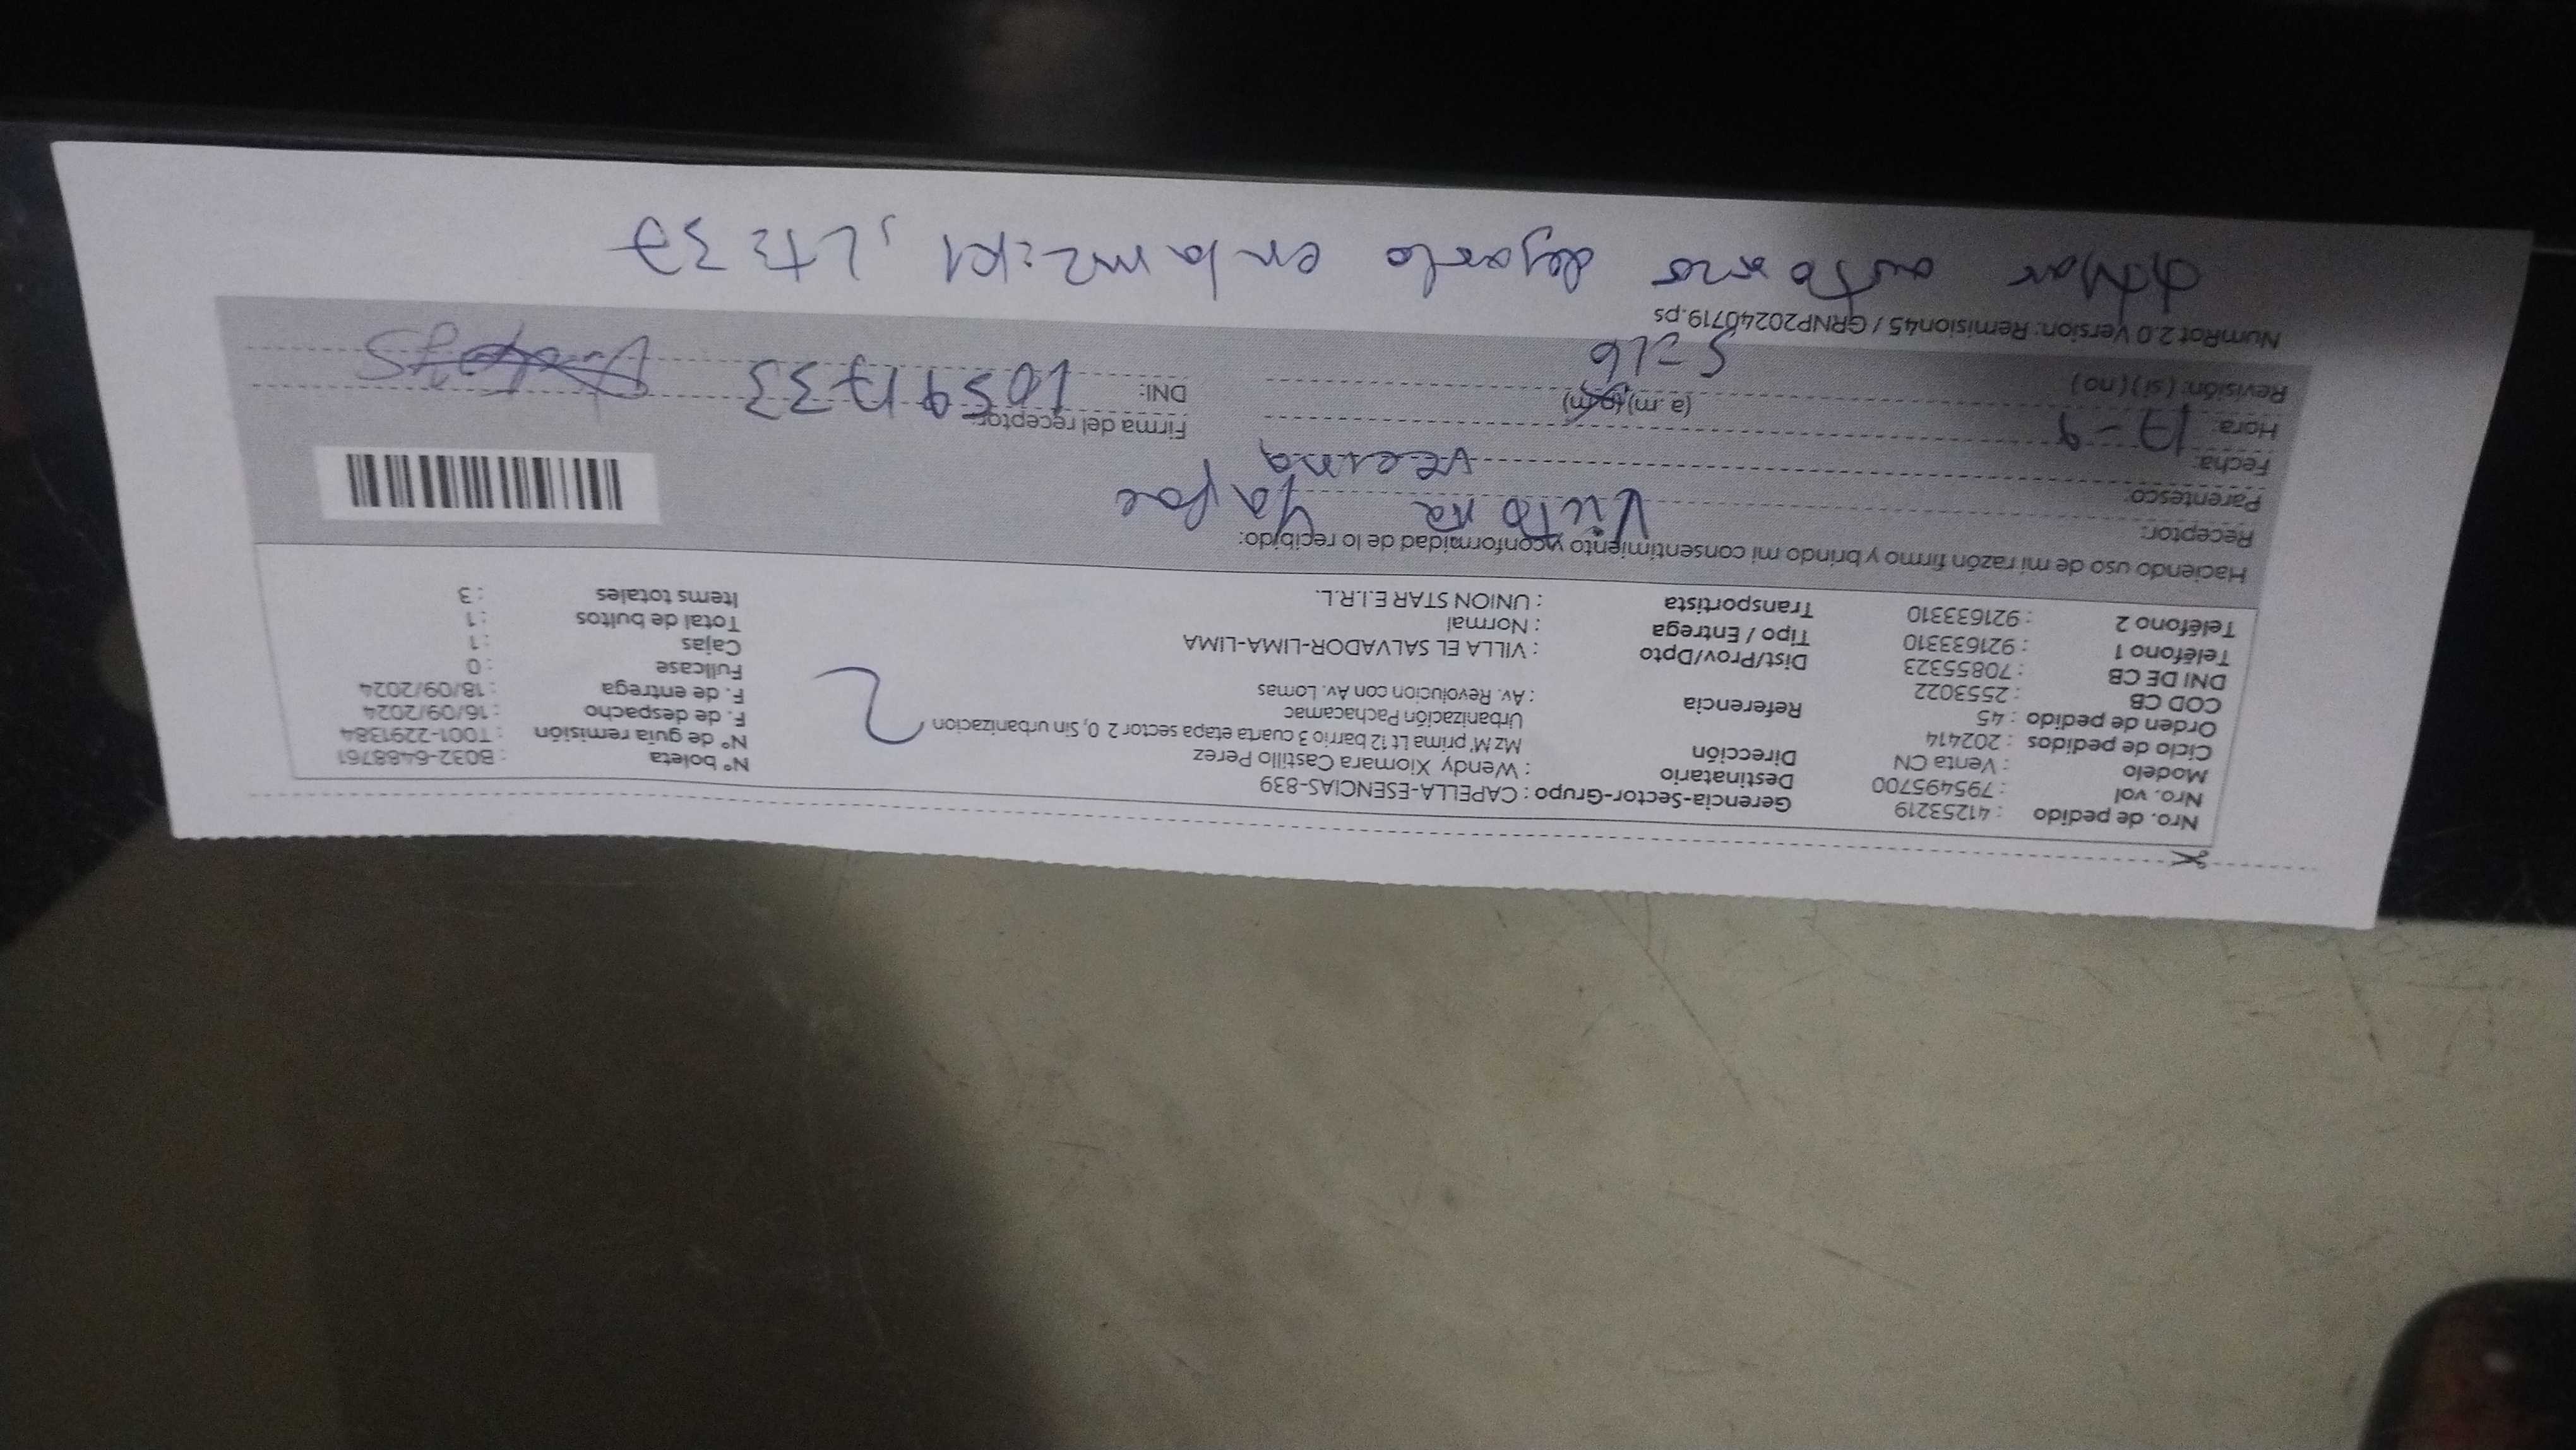 Nro. de pedido : 41253219
Nro. vol : 795495700
Modelo : Venta CN
Ciclo de pedidos : 202414
Orden de pedido : 45
COD CB : 2553022
DNI DE CB : 70855323
Teléfono 1 : 921633310
Teléfono 2 : 921633310
Gerencia-Sector-Grupo : CAPELLA-ESENCIAS-839
Destinatario : Wendy Xiomara Castillo Perez
Dirección Mz M' prima Lt 12 barrio 3 cuarta etapa sector 2 0, Sin urbanizacion
Urbanización Pachacamac
Referencia : Av. Revolucion con Av. Lomas
Dist/Prov/Dpto : VILLA EL SALVADOR-LIMA-LIMA
Tipo / Entrega : Normal
Transportista : UNION STAR E.I.R.L.
N° boleta : B032-6488761
N° de guía remisión : T001-2291384
F. de despacho : 16/09/2024
F. de entrega : 18/09/2024
Fullcase : 0
Cajas : 1
Total de bultos : 1
Items totales : 3
Haciendo uso de mi razón firmo y brindo mi consentimiento y conformidad de lo recibido:
Receptor: Victoria
Parentesco: vecina
Fecha: 17-9
Hora: (a.m) (p.m) 5=26
Revisión: (si) (no)
Firma del receptor:
DNI: 10591733
NumRot 2.0 Version: Remision45 / GRNP20240719.ps
autorizo dejarlo en la mz=K1, Lt=37